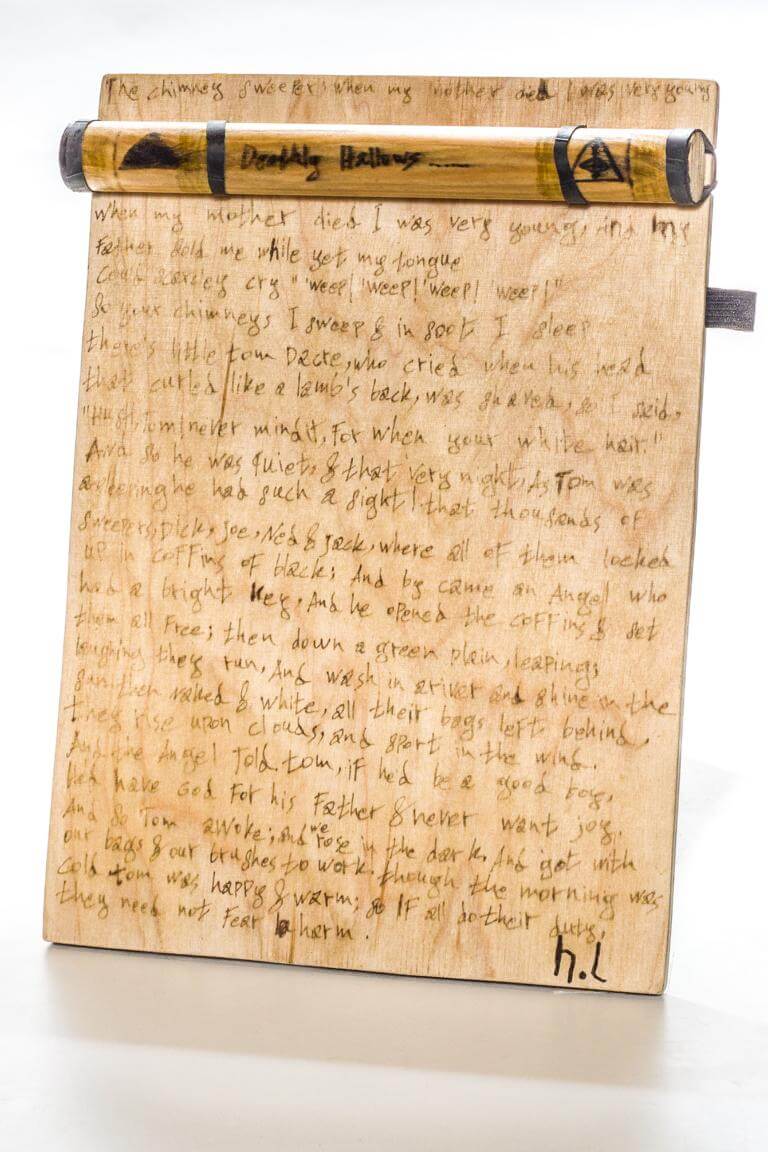 The chimney sweeper: when my mother died I was very young
Deathly Hallows
when my mother died I was very young, and my
Father sold me while yet my tongue
Could scarcley cry "'weep! 'weep! 'weep! 'weep!"
So your chimneys I sweep & in soot I sleep
there's little tom Dacre, who cried when his head
that curled like a lamb's back, was shaved, so I said,
"Hush, Tom! never mind it, For when your white hair."
And so he was quiet, & that very night, As Tom was
a sleeping he had such a sight! that thousands of
sweepers, Dick, Joe, Ned & Jack, where all of them locked
up in coFFins of black; And by came an Angel who
had a bright key, And he opened the coFFins & set
them all Free; then down a green plain, leaping,
laughing they run, And wash in a river and shine in the
sun. then naked & white, all their bags left behind,
they rise upon clouds, and sport in the wind.
And the Angel Told tom, iF he'd be a good boy,
Hed have God For his Father & never want joy.
And so Tom awoke; and we rose in the dark, And got with
our bags & our brushes to work. though the morning was
cold tom was happy & warm; so IF all do their duty,
they need not Fear harm.
h.l